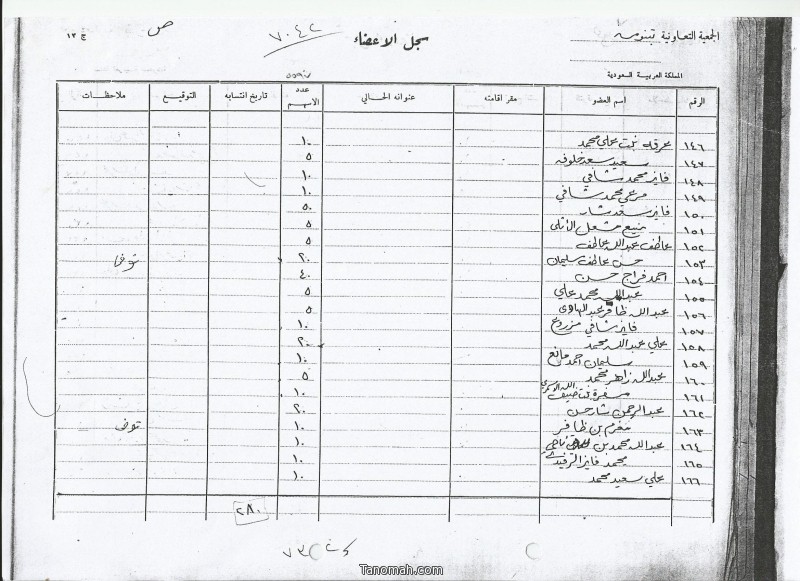 الجمعية التعاونية بتنومه
سجل الاعضاء
٧٠٤٢
ص
ج ١٣
المملكة العربية السعودية
الرقم اسم العضو مقر اقامته عنوانه الحالي عدد الاسهم تاريخ انتسابه التوقيع ملاحظات
١٤٦ بنت علي محمد ١٠
١٤٧ سعيد سعد خلوفه ٥
١٤٨ فايز محمد شافي ١٠
١٤٩ مرعي محمد شافي ١٠
١٥٠ فايز سعد شار ٥٠
١٥١ مشعل ٥
١٥٢ عاطف عبدالله عاطف ٥
١٥٣ حسن عاطف سليمان ٢٠ توفى
١٥٤ احمد فراج حسن ٤٠
١٥٥ عبدالله محمد علي ٥
١٥٦ عبدالله ظافر عبدالهادي ٥
١٥٧ فايز شافي مزروع ١٠
١٥٨ علي عبدالله محمد ٢٠
١٥٩ سليمان احمد مانع ١٠
١٦٠ عبدالله زاهر محمد ٥
١٦١ مسفرة بنت ضيف الله ١٠
١٦٢ عبدالرحمن شار حسن ٢٠
١٦٣ مغرم بن ظافر ١٠ توفى
١٦٤ عبدالله محمد بن ١٠
١٦٥ محمد فايز ١٠
١٦٦ علي سعيد محمد ١٠
٢٨٠
٧٣
Tanomah.com